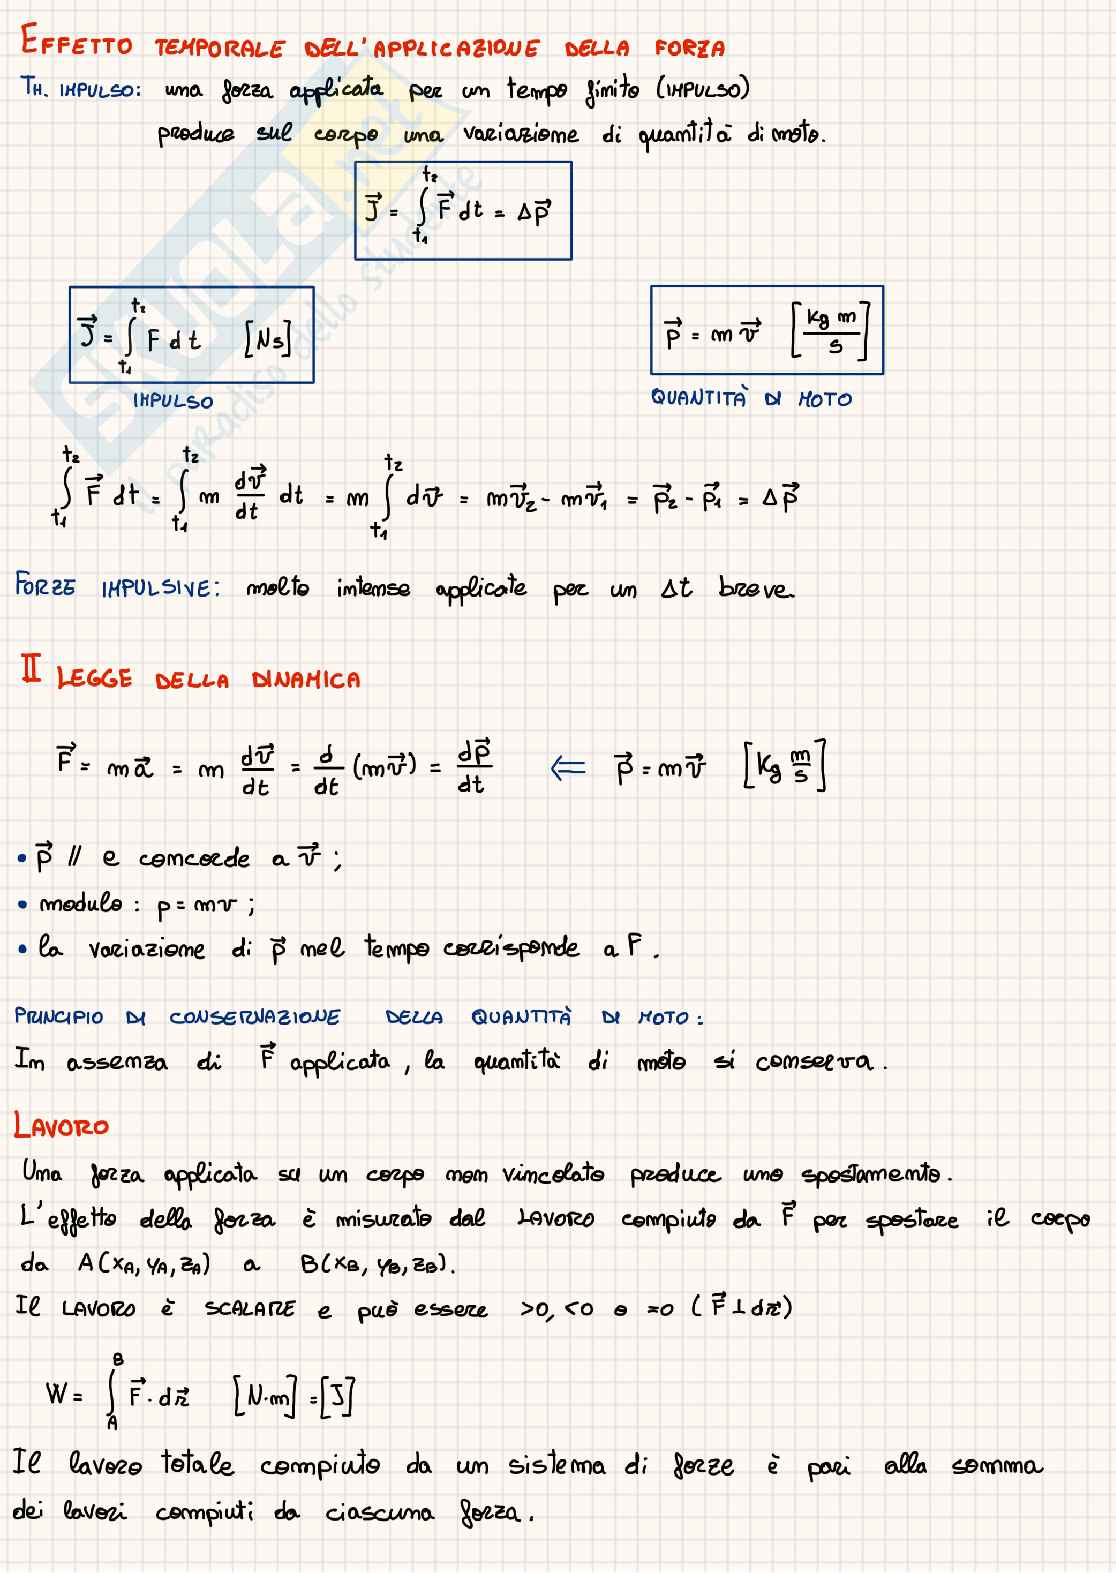 EFFETTO TEMPORALE DELL'APPLICAZIONE DELLA FORZA
TH. IMPULSO: una forza applicata per un tempo finito (IMPULSO)
produce sul corpo una variazione di quantità di moto.
J⃗ = ∫_{t₁}^{t₂} F⃗ dt = Δp⃗
J⃗ = ∫_{t₁}^{t₂} F dt [Ns]
p⃗ = m v⃗ [kg m / s]
IMPULSO
QUANTITÀ DI MOTO
∫_{t₁}^{t₂} F⃗ dt = ∫_{t₁}^{t₂} m dv⃗/dt dt = m ∫_{t₁}^{t₂} dv⃗ = mv⃗₂ - mv⃗₁ = p⃗₂ - p⃗₁ = Δp⃗
FORZE IMPULSIVE: molto intense applicate per un Δt breve.
II LEGGE DELLA DINAMICA
F⃗ = ma⃗ = m dv⃗/dt = d/dt (mv⃗) = dp⃗/dt ⇐ p⃗ = mv⃗ [Kg m/s]
• p⃗ // e concorde a v⃗ ;
• modulo : p = mv ;
• la variazione di p⃗ nel tempo corrisponde a F .
PRINCIPIO DI CONSERVAZIONE DELLA QUANTITÀ DI MOTO :
In assenza di F⃗ applicata , la quantità di moto si conserva .
LAVORO
Una forza applicata su un corpo non vincolato produce uno spostamento.
L'effetto della forza è misurato dal LAVORO compiuto da F⃗ per spostare il corpo
da A(xA, yA, zA) a B(xB, yB, zB).
Il LAVORO è SCALARE e può essere >0, <0 o =0 ( F⃗ ⊥ dr⃗ )
W = ∫_A^B F⃗ · dr⃗ [N·m] = [J]
Il lavoro totale compiuto da un sistema di forze è pari alla somma
dei lavori compiuti da ciascuna forza .
SKUOLA.net
il paradiso dello studente